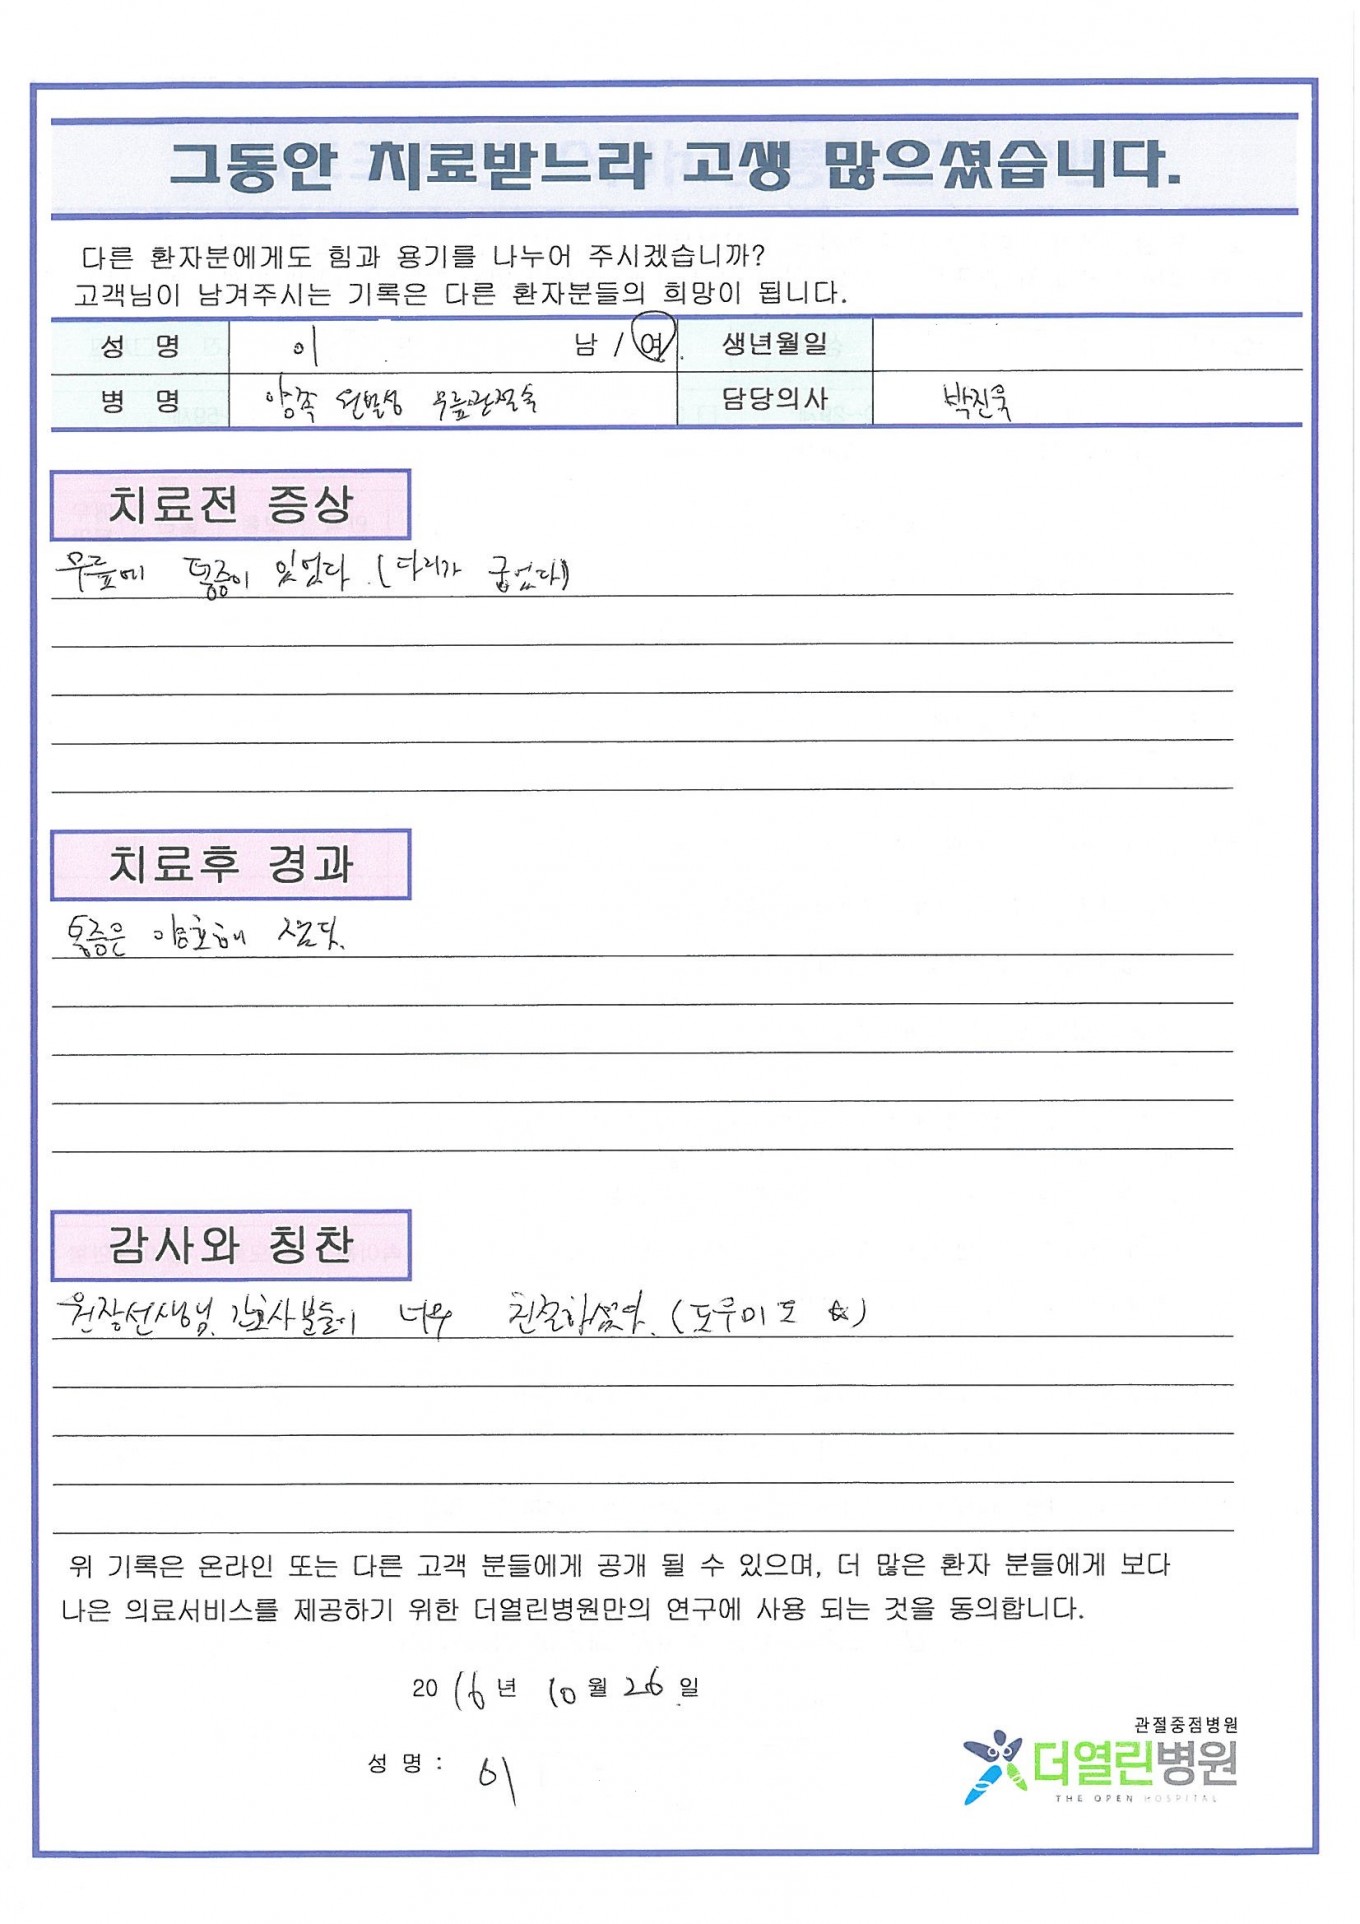 그동안 치료받느라 고생 많으셨습니다.
다른 환자분에게도 힘과 용기를 나누어 주시겠습니까?
고객님이 남겨주시는 기록은 다른 환자분들의 희망이 됩니다.
성 명 이 남 / 여 생년월일
병 명 양쪽 원발성 무릎관절증 담당의사 박진욱
치료전 증상
무릎에 통증이 있었다. (다리가 굽었다)
치료후 경과
통증은 양호해
감사와 칭찬
원장선생님, 간호사분들이 너무 친절하셨다. (도우미도 ☆)
위 기록은 온라인 또는 다른 고객 분들에게 공개 될 수 있으며, 더 많은 환자 분들에게 보다
나은 의료서비스를 제공하기 위한 더열린병원만의 연구에 사용 되는 것을 동의합니다.
2016년 10월 26일
성 명 : 이
관절중점병원
더열린병원
THE OPEN HOSPITAL